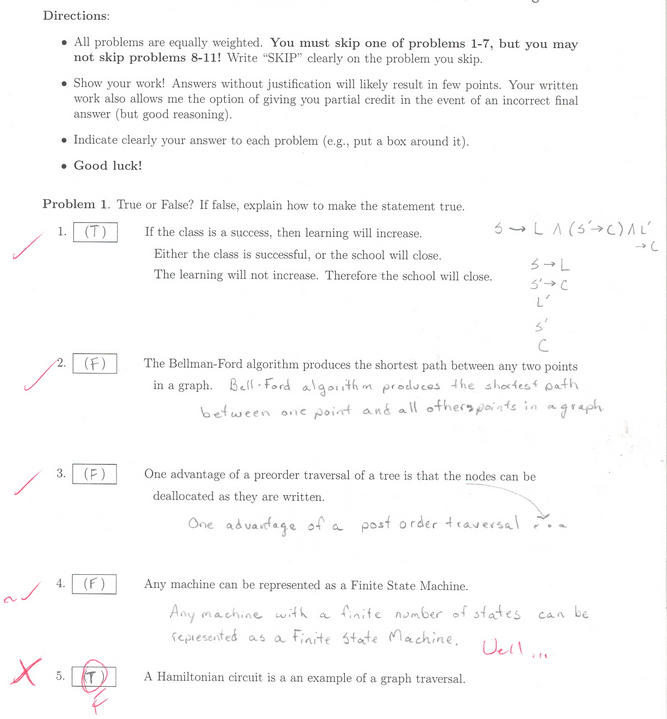 Directions:
• All problems are equally weighted. You must skip one of problems 1-7, but you may
not skip problems 8-11! Write “SKIP” clearly on the problem you skip.
• Show your work! Answers without justification will likely result in few points. Your written
work also allows me the option of giving you partial credit in the event of an incorrect final
answer (but good reasoning).
• Indicate clearly your answer to each problem (e.g., put a box around it).
• Good luck!
Problem 1. True or False? If false, explain how to make the statement true.
1. (T) If the class is a success, then learning will increase.
Either the class is successful, or the school will close.
The learning will not increase. Therefore the school will close.
S → L ∧ (S' → C) ∧ L'
→ C
S → L
S' → C
L'
S'
C
2. (F) The Bellman-Ford algorithm produces the shortest path between any two points
in a graph. Bell-Ford algorithm produces the shortest path
between one point and all others points in a graph
3. (F) One advantage of a preorder traversal of a tree is that the nodes can be
deallocated as they are written.
One advantage of a post order traversal ...
4. (F) Any machine can be represented as a Finite State Machine.
Any machine with a finite number of states can be
represented as a Finite State Machine.
Well...
5. (T) A Hamiltonian circuit is a an example of a graph traversal.
F